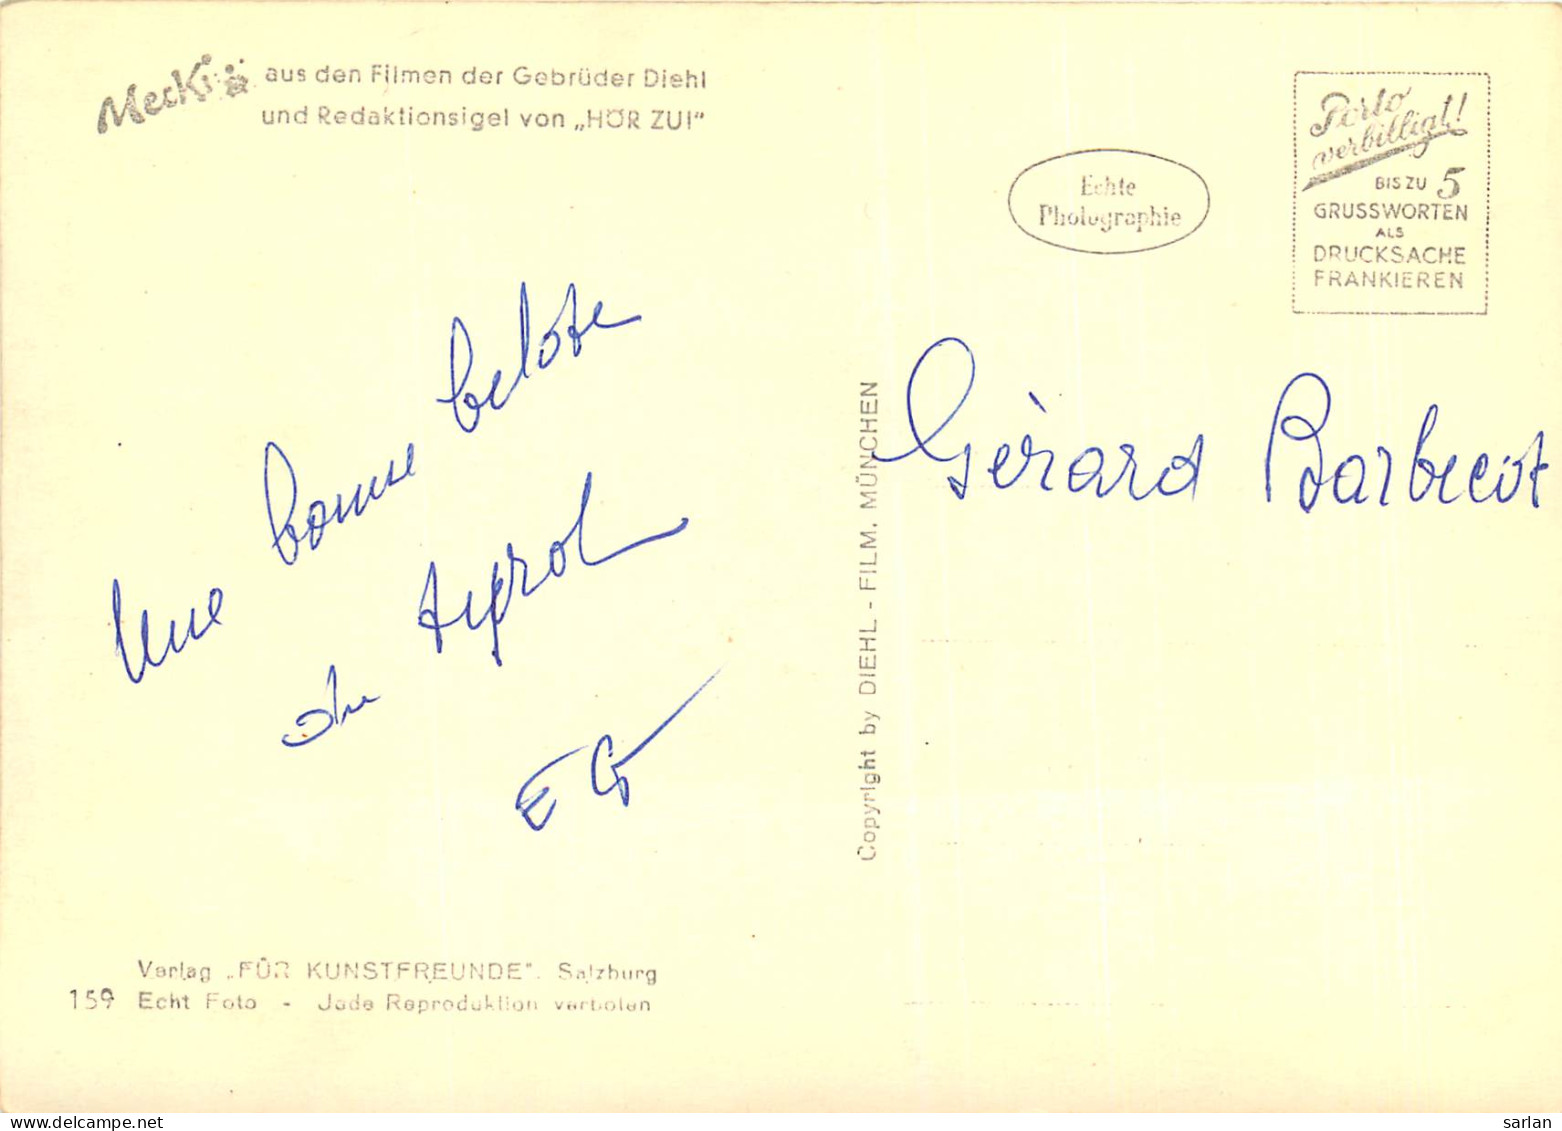 Mecki aus den Filmen der Gebrüder Diehl
und Redaktionsigel von „HÖR ZU!"
Echte
Photographie
Porto
verbilligt!
BIS ZU 5
GRUSSWORTEN
ALS
DRUCKSACHE
FRANKIEREN
Une bonne belote
du tyrol
EG
Copyright by DIEHL - FILM. MÜNCHEN
Gèrard Barbecot
Verlag „FÜR KUNSTFREUNDE". Salzburg
159 Echt Foto - Jede Reproduktion verboten
sarlan